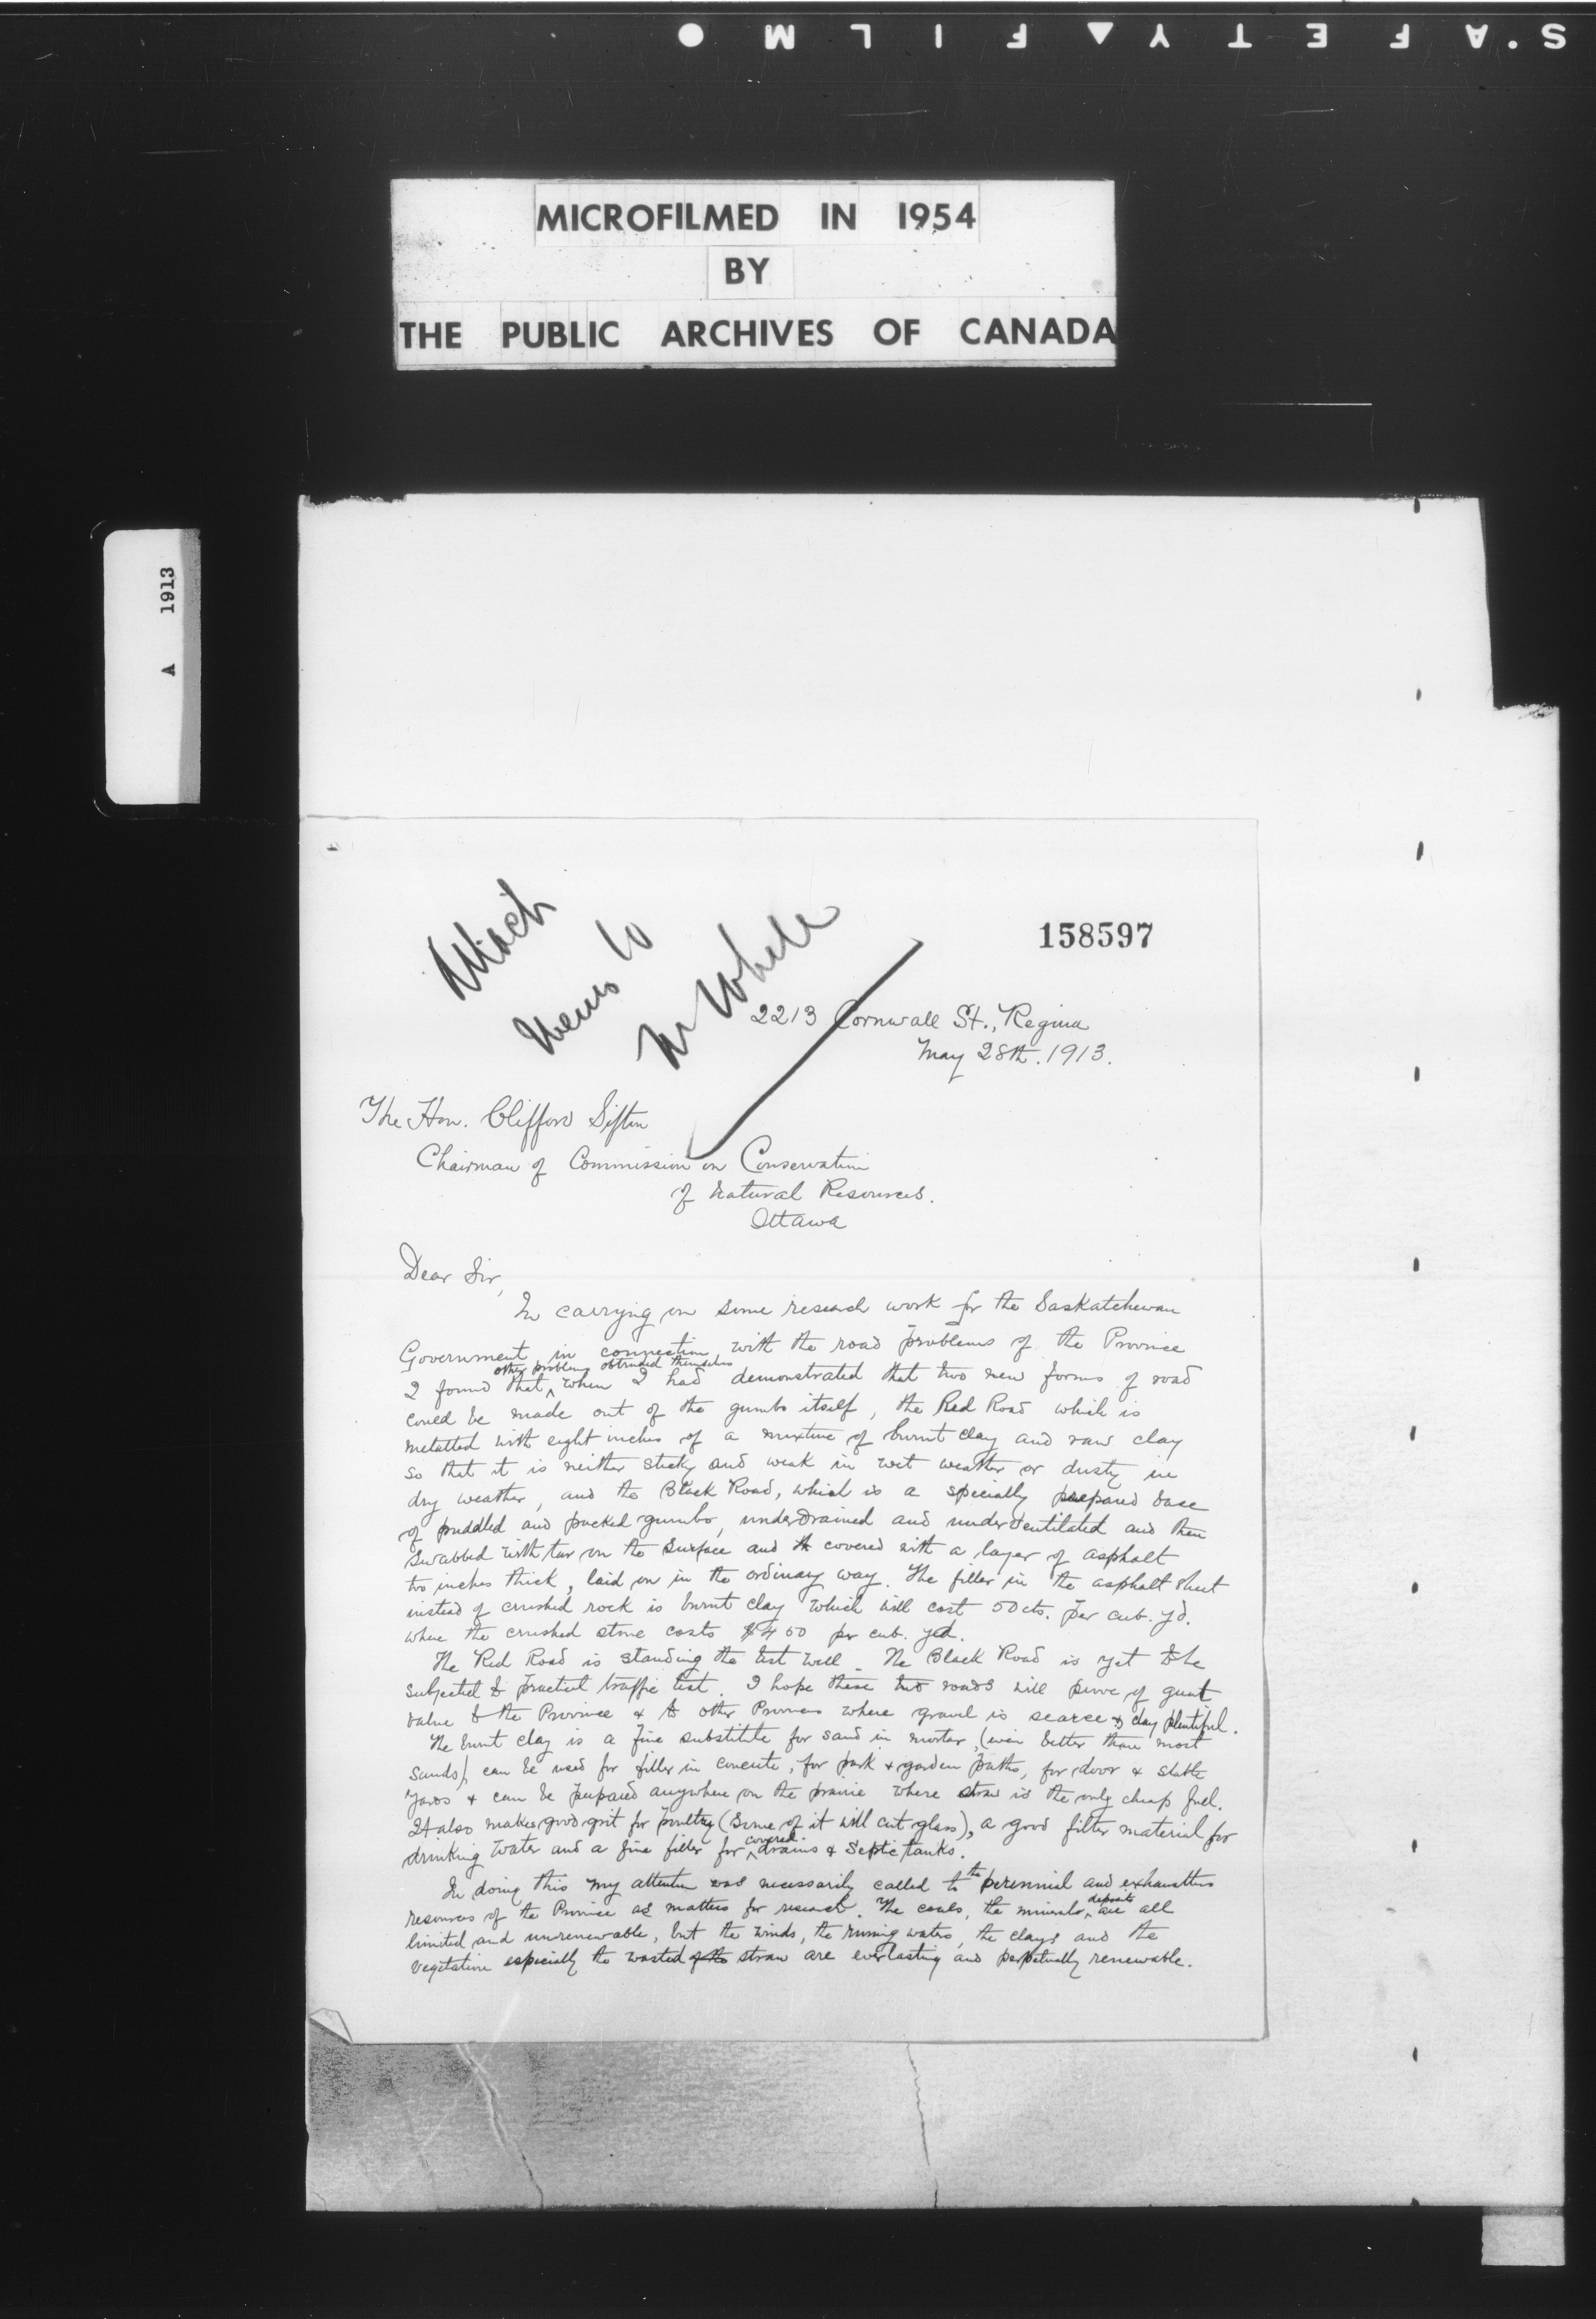 S.AFETY▲FILM●
MICROFILMED IN 1954
BY
THE PUBLIC ARCHIVES OF CANADA
A 1913
158597
Attach
memo to
Mr White
2213 Cornwall St., Regina
May 28th. 1913.
The Hon. Clifford Sifton
Chairman of Commission on Conservation
of Natural Resources.
Ottawa
Dear Sir,
In carrying on some research work for the Saskatchewan
Government in connection with the road problems of the Province
other problems obtruded themselves
I found that ^ when I had demonstrated that two new forms of road
could be made out of the gumbo itself, the Red Road which is
metalled with eight inches of a mixture of burnt clay and raw clay
so that it is neither sticky and weak in wet weather or dusty in
dry weather, and the Black Road, which is a specially prepared base
of puddled and packed gumbo, underdrained and underventilated and then
swabbed with tar on the surface and covered with a layer of asphalt
two inches thick, laid on in the ordinary way. The filler in the asphalt sheet
instead of crushed rock is burnt clay which will cost 50cts. per cub. yd.
where the crushed stone costs $4 50 per cub. yd.
The Red Road is standing the test well. The Black Road is yet to be
subjected to practical traffic test. I hope these two roads will prove of great
value to the Province & to other Provinces where gravel is scarce & clay plentiful.
The burnt clay is a fine substitute for sand in mortar, (even better than most
sands), can be used for filler in concrete, for park & garden paths, for door & stable
yards & can be prepared anywhere on the prairie where straw is the only cheap fuel.
It also makes good grit for poultry (some of it will cut glass), a good filter material for
drinking water and a fine filler for ^ covered drains & septic tanks.
In doing this my attention was necessarily called to the perennial and exhaustless
resources of the Province as matters for research. The coals, the minerals ^ deposits are all
limited and unrenewable, but the winds, the running waters, the clays and the
vegetation especially the wasted of the straw are everlasting and perpetually renewable.